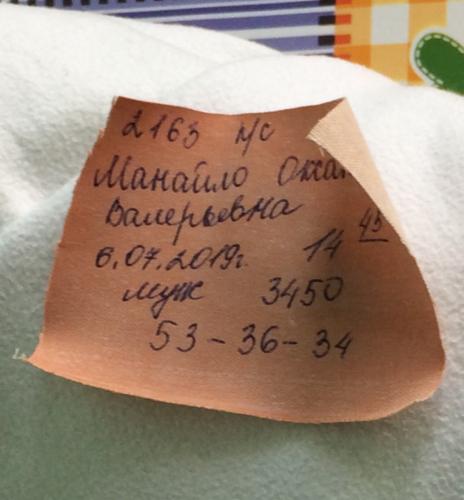 2163 н/с
Манайло Окса
Валерьевна
6.07.2019г. 14 45
муж 3450
53-36-34